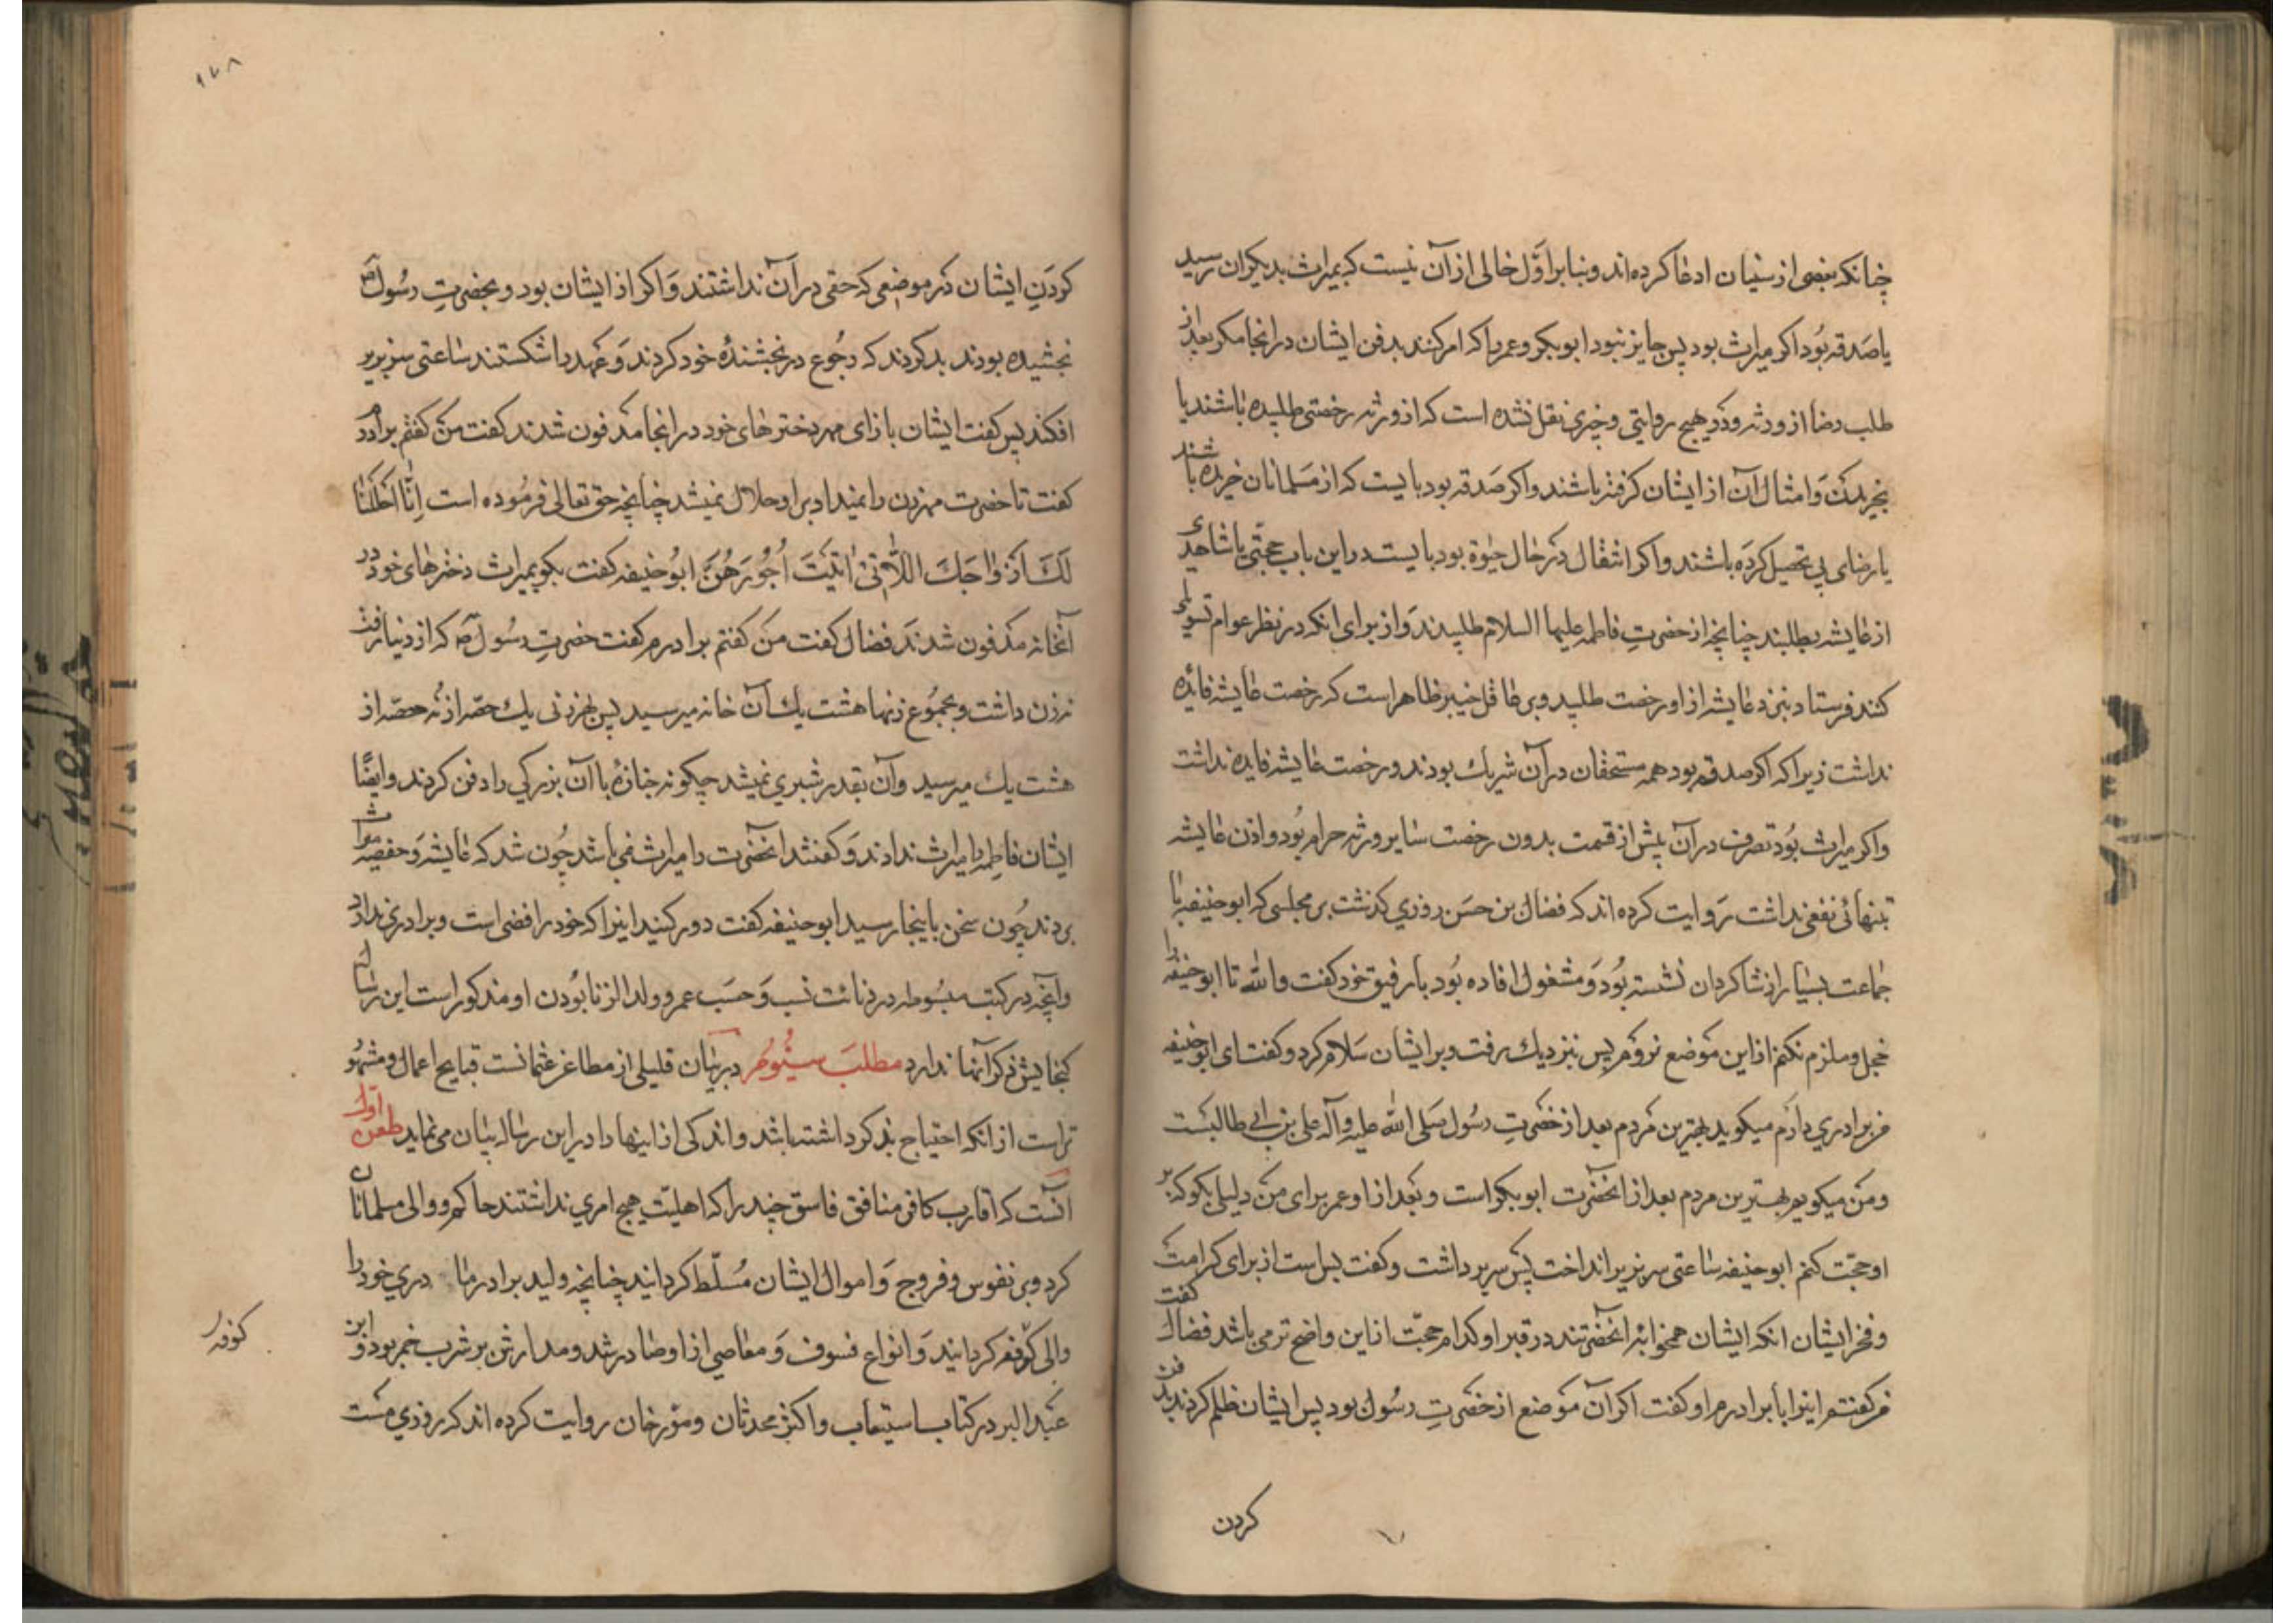 چنانکه بعضی از سنیان ادعا کرده‌اند و بنا بر اوّل خالی از آن نیست که بمیراث بدیکران رسید
یا صَدقه بُود اکر میراث بود پس جایز نبود ابوبکر و عمر را که امر کنند بدفن ایشان در انجا مکر بعد از
طلب رضا از ورثه و در هیچ روایتی و خبری نقل نشده است که از ورثه رخصتی طلبیده باشند یا
بخریدن وَ امثال آن از ایشان کرفته باشند و اکر صَدقه بود بایست که از مسَلمانان خریده باشند
یا رضای پی تحصیل کرَده باشند و اکر انتقال در حال حیٰوة بود بایست در این باب حجتی یا شاهدی
از عایشه بطلبند چنانچه از حضرتِ فاطمه علیها السلام طلبیدند وَ از برای انکه در نظر عوام تسویلی
کنند فرستادند نزد عایشه از او رخصت طلبید و بر عاقل خبیر ظاهر است که رخصت عایشه فائده
نداشت زیرا که اکر صدقه بود همه مستحقان در آن شریك بودند و رخصت عایشه فایده نداشت
و اکر میراث بُود تصرف در آن پیش از قسمت بدون رخصت سایر ورثه حرام بُود و اذن عایشه
بتنهائی نفعی نداشت رَوایت کرده اند که فضال بن حسَن روزی کذشت بر مجلسی که ابوحنیفه با
جماعت بسیار از شاکردان نشسته بُود وَ مشغول افاده بُود با رفیق خود کفت والله تا ابوحنیفه را
خجل و ملزم نکنم از این مَوضع نروَم پس نزدیك رفت و بر ایشان سَلام کرد و کفت ای ابوحنیفه
من برادری دارَم میکوید بهترین مَردم بعد از حضَرتِ رسُول صَلی الله علیه وآله علی بن ابی طالبست
و مَن میکویم بهترین مردم بعد از انحضَرت ابوبکر است و بَعد از او عمر برای مَن دلیلی بکو که بر
او حجّت کنم ابوحنیفه ساعتی سر بزیر انداخت پَس سر برداشت و کفت بس است از برای کرامت
و فخر ایشان انکه ایشان همخوابهٔ انحضرتند در قبر او کدام حجّت از این واضح تر می باشد فضال کفت
من کفتم اینرا بابرادرم او کفت اکر آن مَوضع از حضَرتِ رسُول بود پس ایشان ظلم کردند بدفن
کردن
۱۷۸
کردَنِ ایشان در موضعی که حقی در آن نداشتند وَ اکر از ایشان بود و بحضرتِ رسُول صَ
بخشیده بودند بد کردند که رجُوع در بخشندهٔ خود کردند وَ عَهد را شکستند ساعتی سر بزیر
افکند پس کفت ایشان بازای مهر دخترهای خود در انجا مدَفون شدند کفت مَن کفتم برادرم
کفت تا حضرت مهر زن را نمیداد بر او حلال نمیشد چنانچه حق تعالی فرمُوده است اِنّٰا اَحْلَلْنٰا
لَكَ اَزْوٰاجَكَ اللّٰاتی اٰتَیْتَ اُجُورَهُنَّ ابوُحنیفه کفت بکو بمیراث دخترهای خود در
آنخانه مدَفون شدند فضال کفت مَن کفتم برادرم کفت حضرتِ رسُول صَ که از دنیا رفت
نه زن داشت و بمجمُوع زنها هشت یك آن خانه میرسید پس بهر زنی یك حصّه از نُه حصّه از
هشت یك میرسید و آن بقدر شبری نمیشد چکونه جنازهٔ با آن بزرکی را دفن کردند و ایضًا
ایشان فاطمِه را میراث ندادند وَ کفتند انحضَرت را میراث نمی باشد چُون شد که عایشه وَ حفصه میراث
بردند چُون سخن باینجا رسید ابوحنیفه کفت دور کنید اینرا که خود رافضی است و برادری ندارد
و آنچه در کتب مبسُوطه در دنائت نسب وَ حسَب عمر و ولد الزنا بُودن او مذکور است این رساله
کنجایش ذکر آنها ندارد مطلبَ سیُّوم در بیٰان قلیلی از مطاعن عثمانست قبایح اعمال و مشهُو
تر است از انکه احتیاج بذکر داشته باشد و اندکی از اینها را در این رساله بیٰان می نماید طعن اول
انست که اقارب کافر منافق فاسق چند را که اهلیّت هیچ امری نداشتند حاکم و والی مسلمانان
کرد و بر نفوس و فروج وَ اموال ایشان مُسلّط کردانید چنانچه ولید برادر ما دری خود را
والی کوفه کردانید وَ انواع فسوق وَ معاصی از او صادر شد و مدارش بر شرب خمر بود و ابن
کوفه
عبَد البر در کتاب استیعاب و اکثر محدثان و مؤرخان روایت کرده اند که روزی مَست